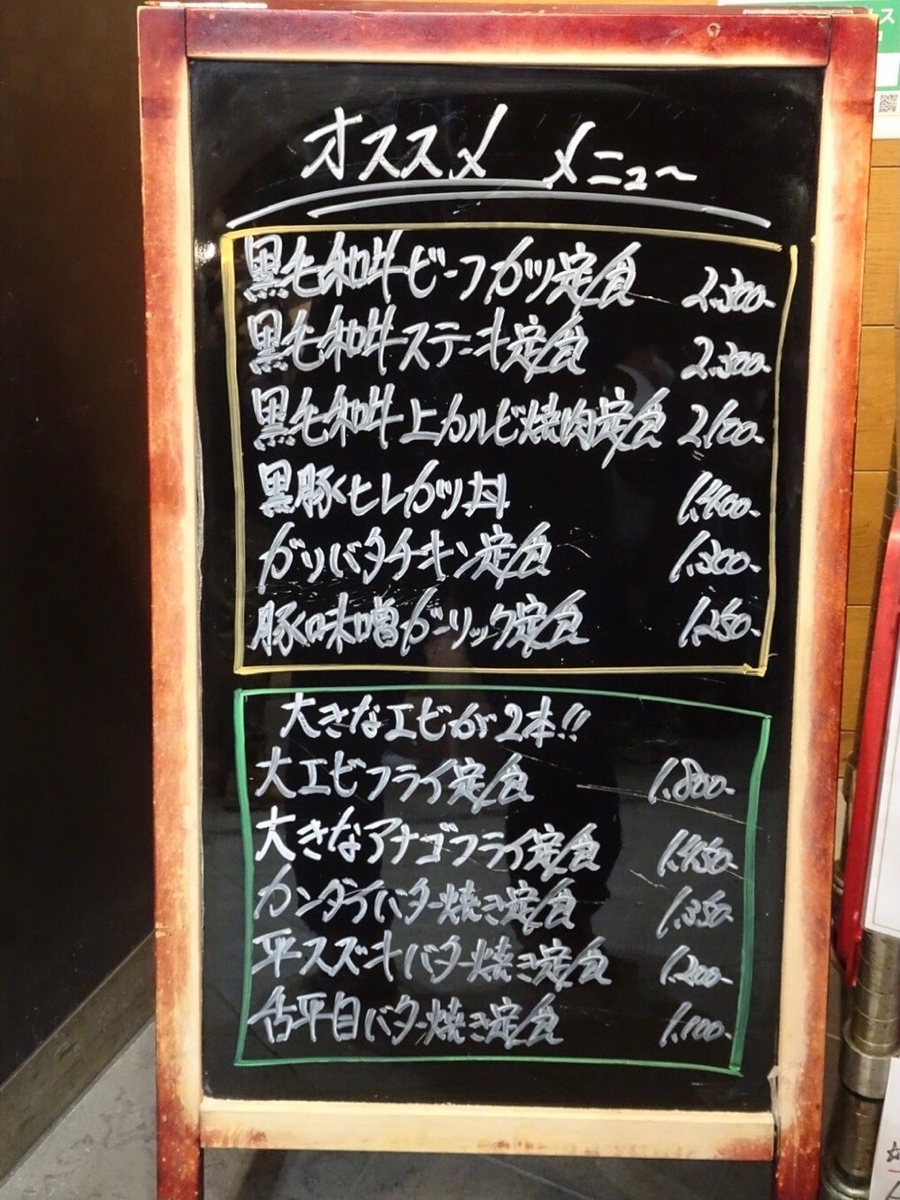 オススメ メニュー
黒毛和牛ビーフカツ定食 2.300-
黒毛和牛ステーキ定食 2.300-
黒毛和牛上カルビ焼肉定食 2.100-
黒豚ヒレカツ丼 1.400-
ガリバタチキン定食 1.300-
豚味噌ガーリック定食 1.250-
大きなエビが2本!!
大エビフライ定食 1.800-
大きなアナゴフライ定食 1.450-
カンダイバター焼き定食 1.350-
平スズキバター焼き定食 1.200-
舌平目バター焼き定食 1.100-